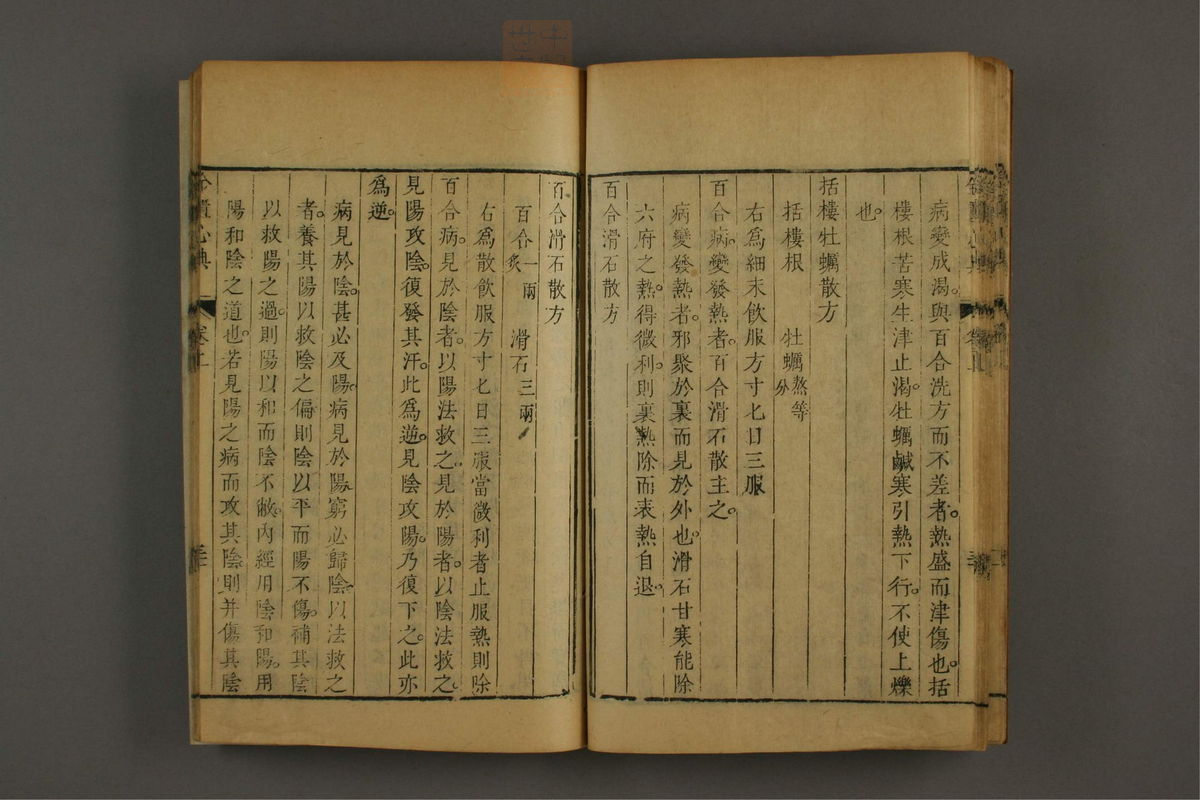 病變成渴。與百合洗方而不差者。熱盛而津傷也。括
樓根苦寒生津止渴。牡蠣鹹寒引熱下行。不使上爍
也。
括樓牡蠣散方
括樓根　牡蠣熬等分
右爲細末飲服方寸匕日三服
百合病。變發熱者。百合滑石散主之。
病變發熱者。邪聚於裏而見於外也。滑石甘寒能除
六府之熱。得微利。則裏熱除而表熱自退。
百合滑石散方
百合滑石散方
百合一兩炙　滑石三兩
右爲散飲服方寸匕日三服當微利者止服熱則除
百合病。見於陰者。以陽法救之。見於陽者。以陰法救之。
見陽攻陰。復發其汗。此爲逆。見陰攻陽。乃復下之。此亦
爲逆。
病見於陰。甚必及陽。病見於陽。窮必歸陰。以法救之
者。養其陽以救陰之偏。則陰以平而陽不傷。補其陰
以救陽之過。則陽以和而陰不敝。內經用陰和陽。用
陽和陰之道也。若見陽之病而攻其陰。則并傷其陰
金匱心典
卷上